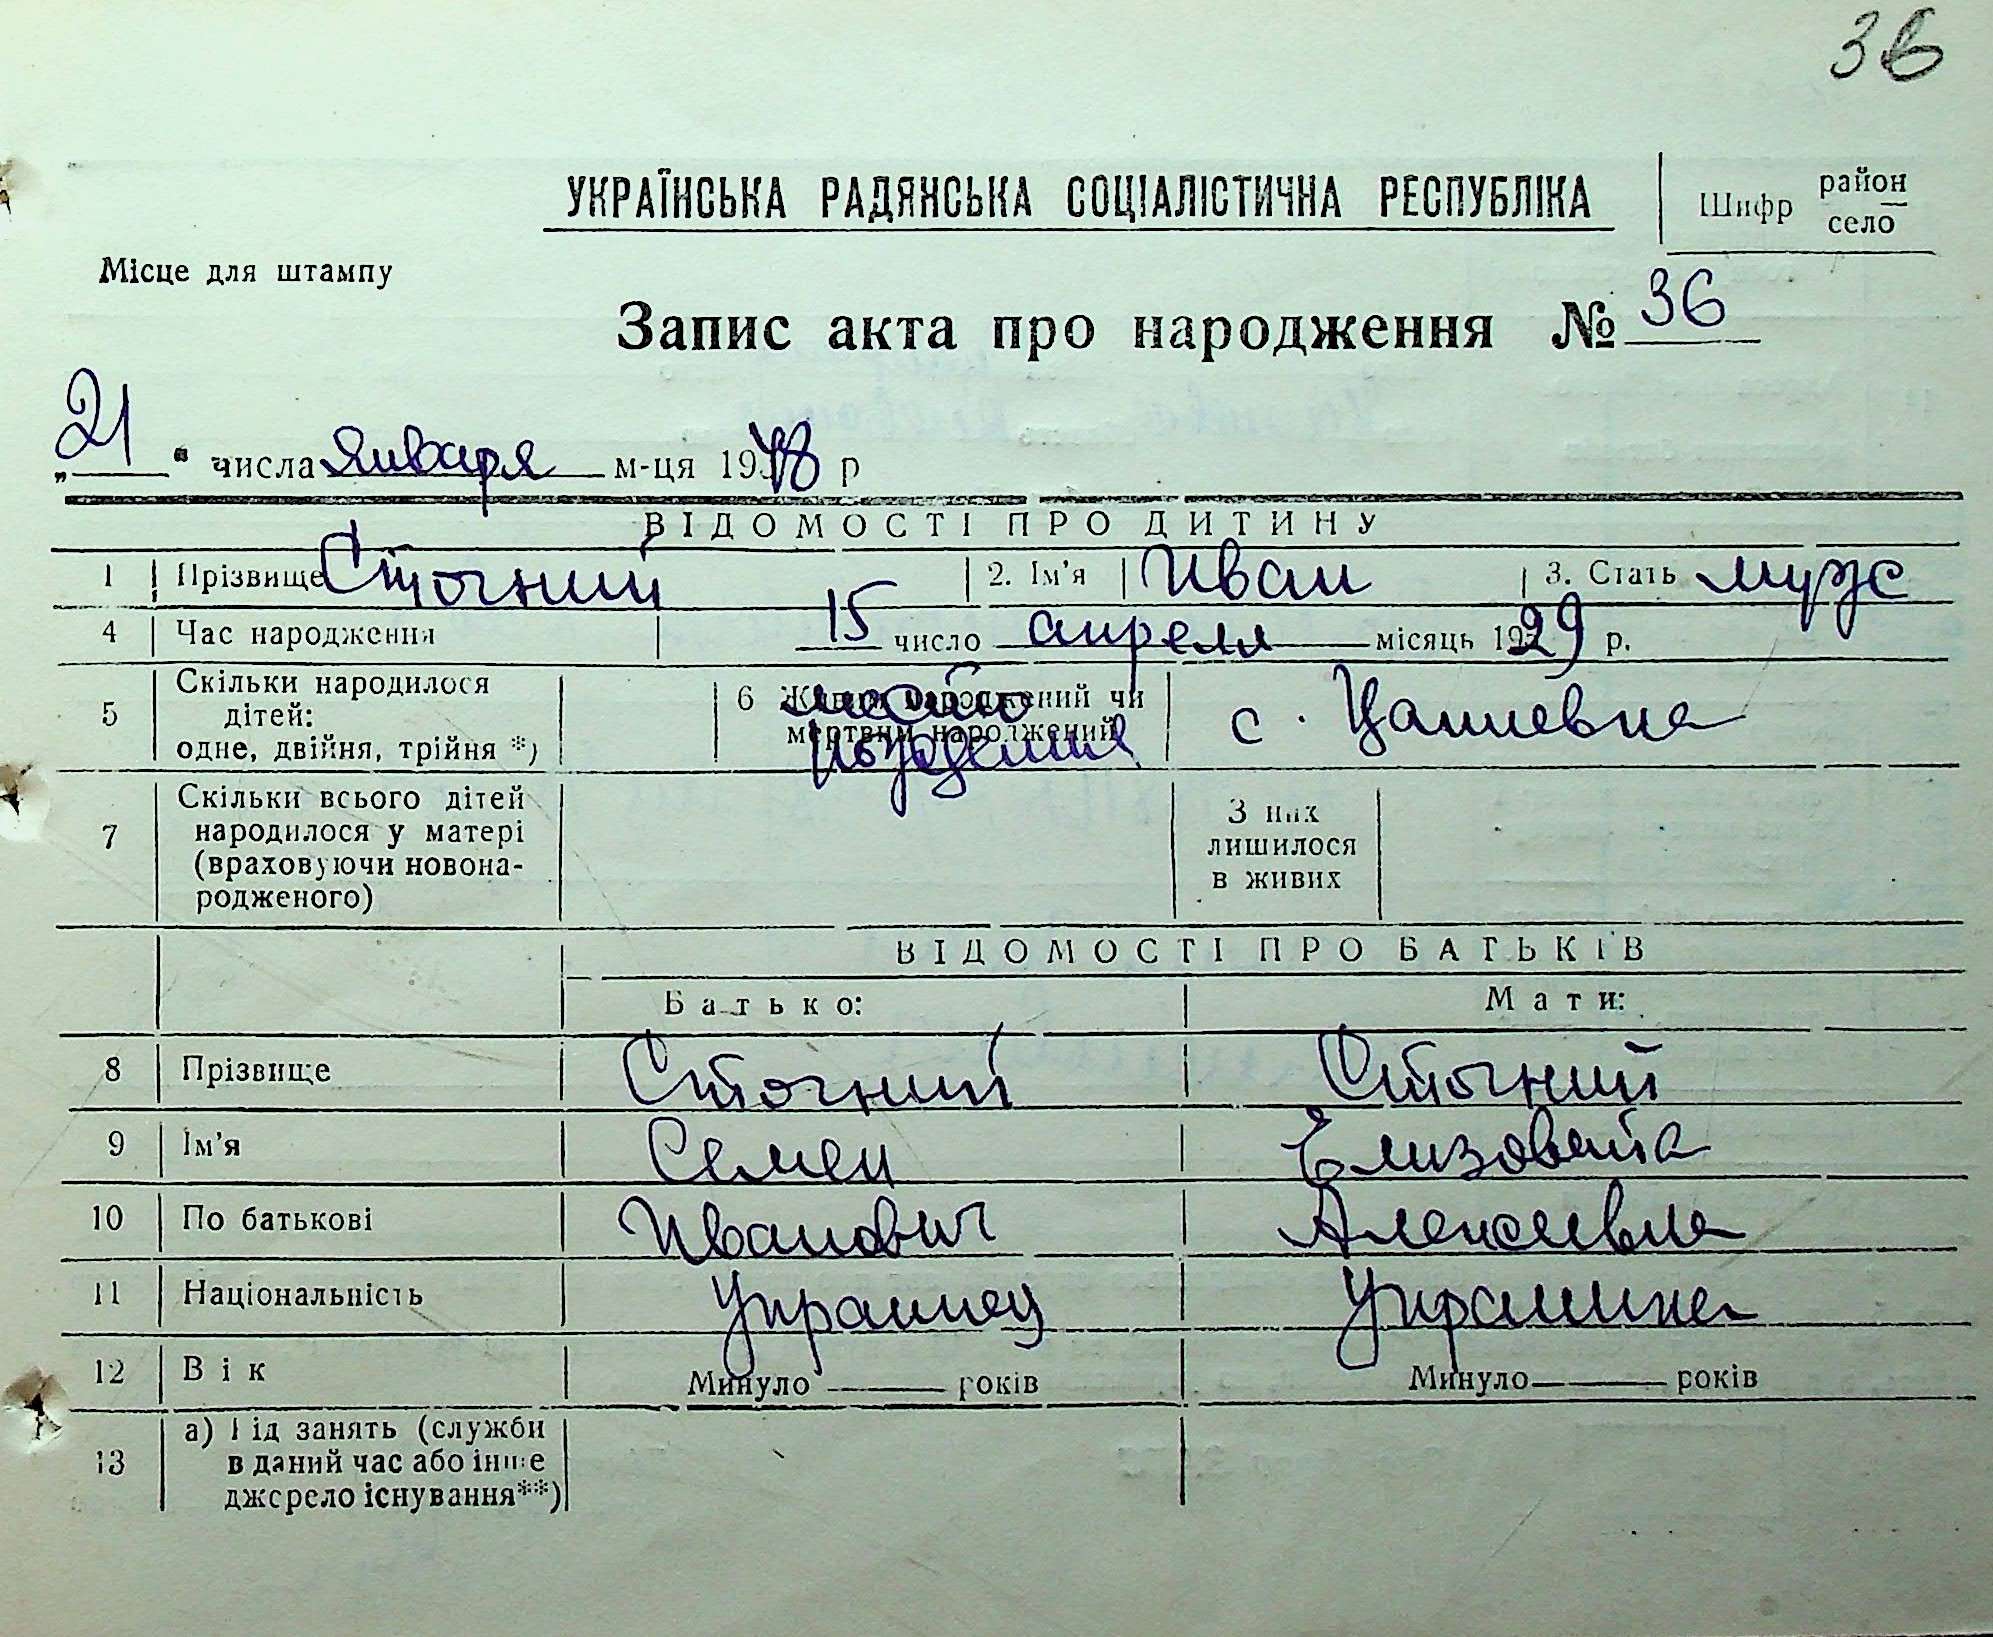 36
УКРАЇНСЬКА РАДЯНСЬКА СОЦІАЛІСТИЧНА РЕСПУБЛІКА
Шифр район село
Місце для штампу
Запис акта про народження № 36
„21“ числа января м-ця 1948 р
ВІДОМОСТІ ПРО ДИТИНУ
1 Прізвище Сточний 2. Ім’я Иван 3. Стать муж
4 Час народження 15 число апреля місяць 1929 р.
5 Скільки народилося дітей: одне, двійня, трійня *) 6 Живим народжений чи мертвим народжений место рождения с.
7 Скільки всього дітей народилося у матері (враховуючи новонародженого) З них лишилося в живих
ВІДОМОСТІ ПРО БАТЬКІВ
Батько: Мати:
8 Прізвище Сточний Сточний
9 Ім’я Семен Елизовета
10 По батькові Иванович Алексеевна
11 Національність Украинец Украинка
12 Вік Минуло років Минуло років
13 а) Рід занять (служби в даний час або інше джерело існування**)